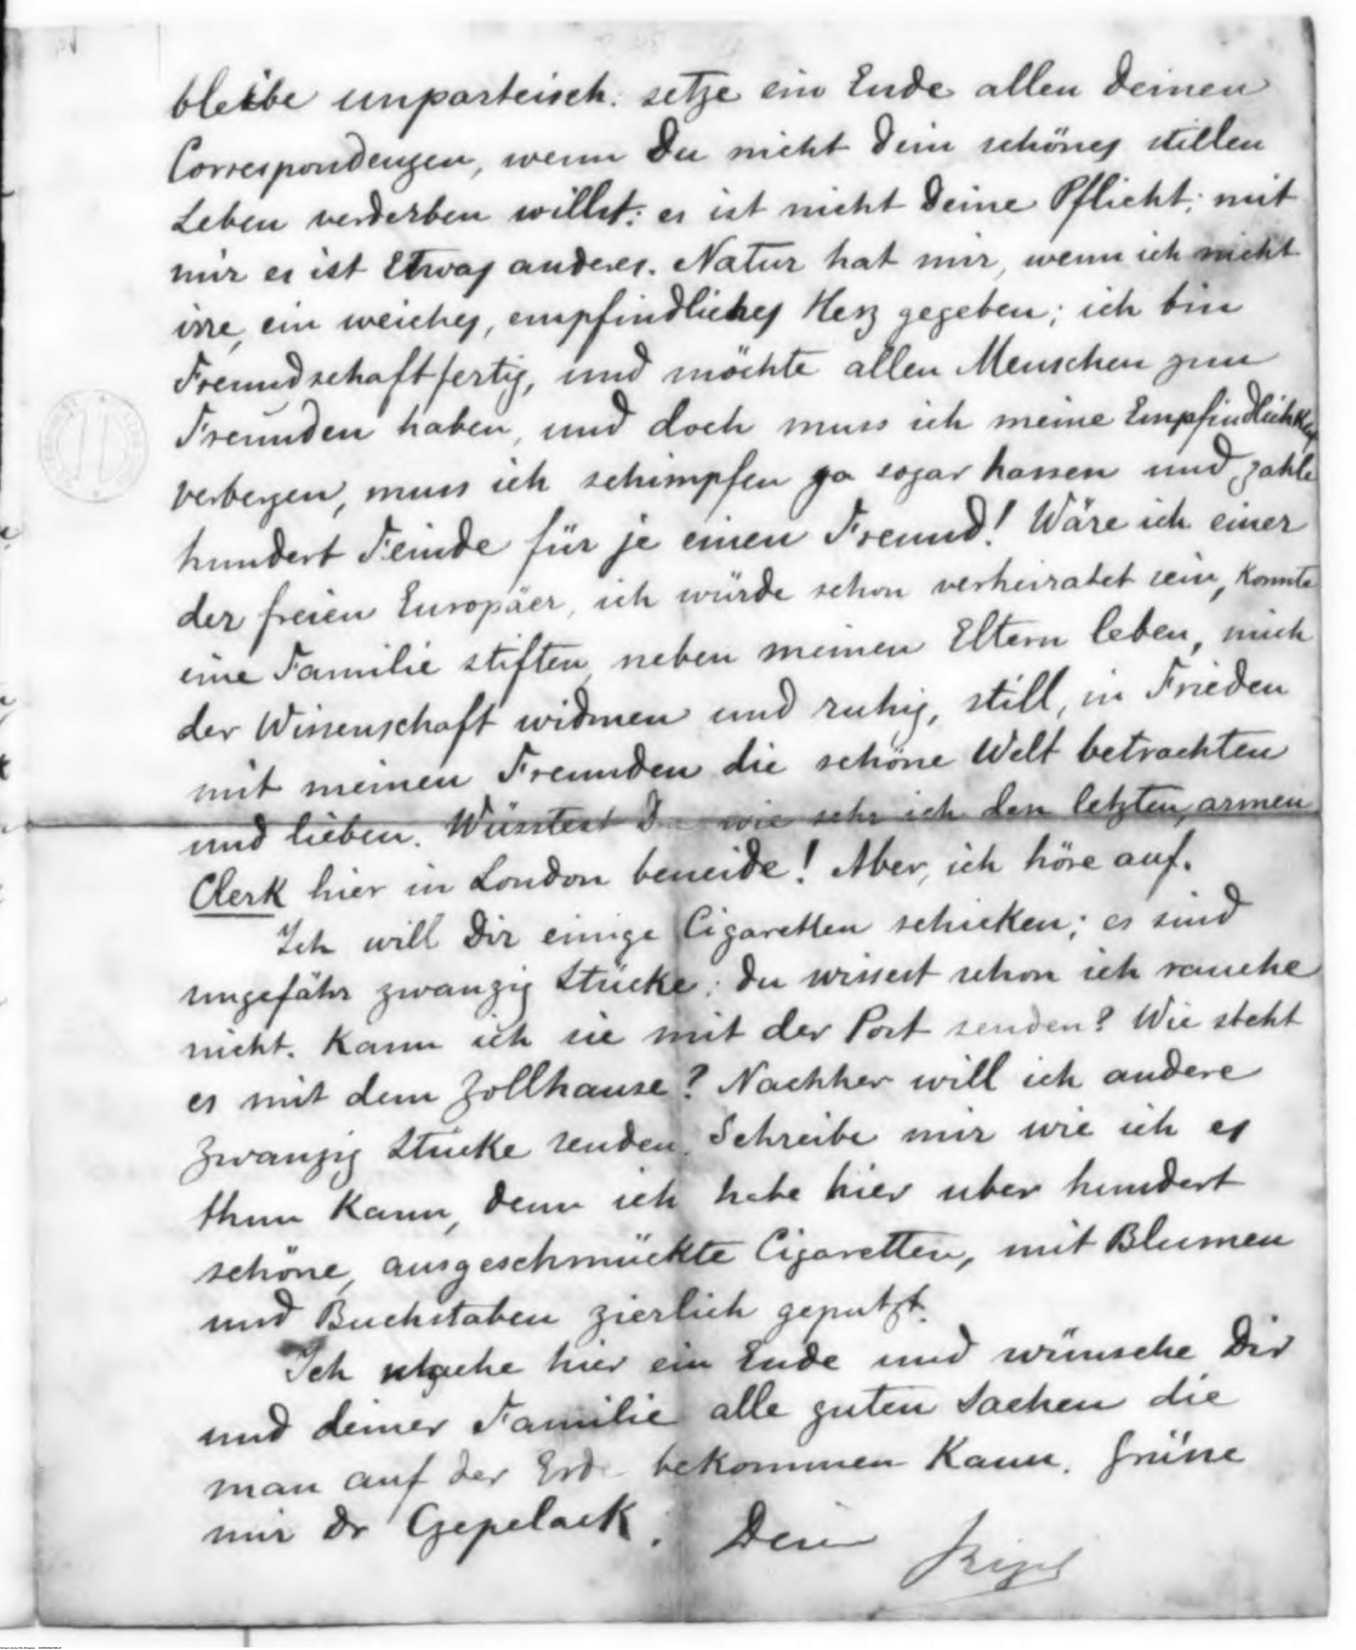 bleibe unparteiisch: setze ein Ende allen Deinen
Correspondenzen, wenn Du nicht Dein schönes stillen
Leben verderben willst: es ist nicht Deine Pflicht; mit
mir es ist Etwas anderes. Natur hat mir, wenn ich nicht
irre, ein weiches, empfindliches Herz gegeben; ich bin
Freundschaftfertig, und möchte allen Menschen zum
Freunden haben, und doch muss ich meine Empfindlichkeit
verbergen, muss ich schimpfen ja sogar hassen und zahle
hundert Feinde für je einen Freund! Wäre ich einer
der freien Europäer, ich würde schon verheiratet sein, konnte
eine Familie stiften, neben meinen Eltern leben, mich
der Wissenschaft widmen und ruhig, still, in Frieden
mit meinen Freunden die schöne Welt betrachten
und lieben. Wüsstest Du wie sehr ich den letzten, armen
Clerk hier in London beneide! Aber, ich höre auf.
Ich will Dir einige Cigaretten schicken; es sind
ungefähr zwanzig Stücke: du wissest schon ich rauche
nicht. Kann ich sie mit der Post senden? Wie steht
es mit dem Zollhause? Nachher will ich andere
zwanzig Stücke senden. Schreibe mir wie ich es
thun kann, denn ich habe hier uber hundert
schöne, ausgeschmückte Cigaretten, mit Blumen
und Buchstaben zierlich geputzt.
Ich mache hier ein Ende und wünsche Dir
und deiner Familie alle guten Sachen die
man auf der Erde bekommen kann. Grüsse
mir Dr Czepelack. Dein
Rizal